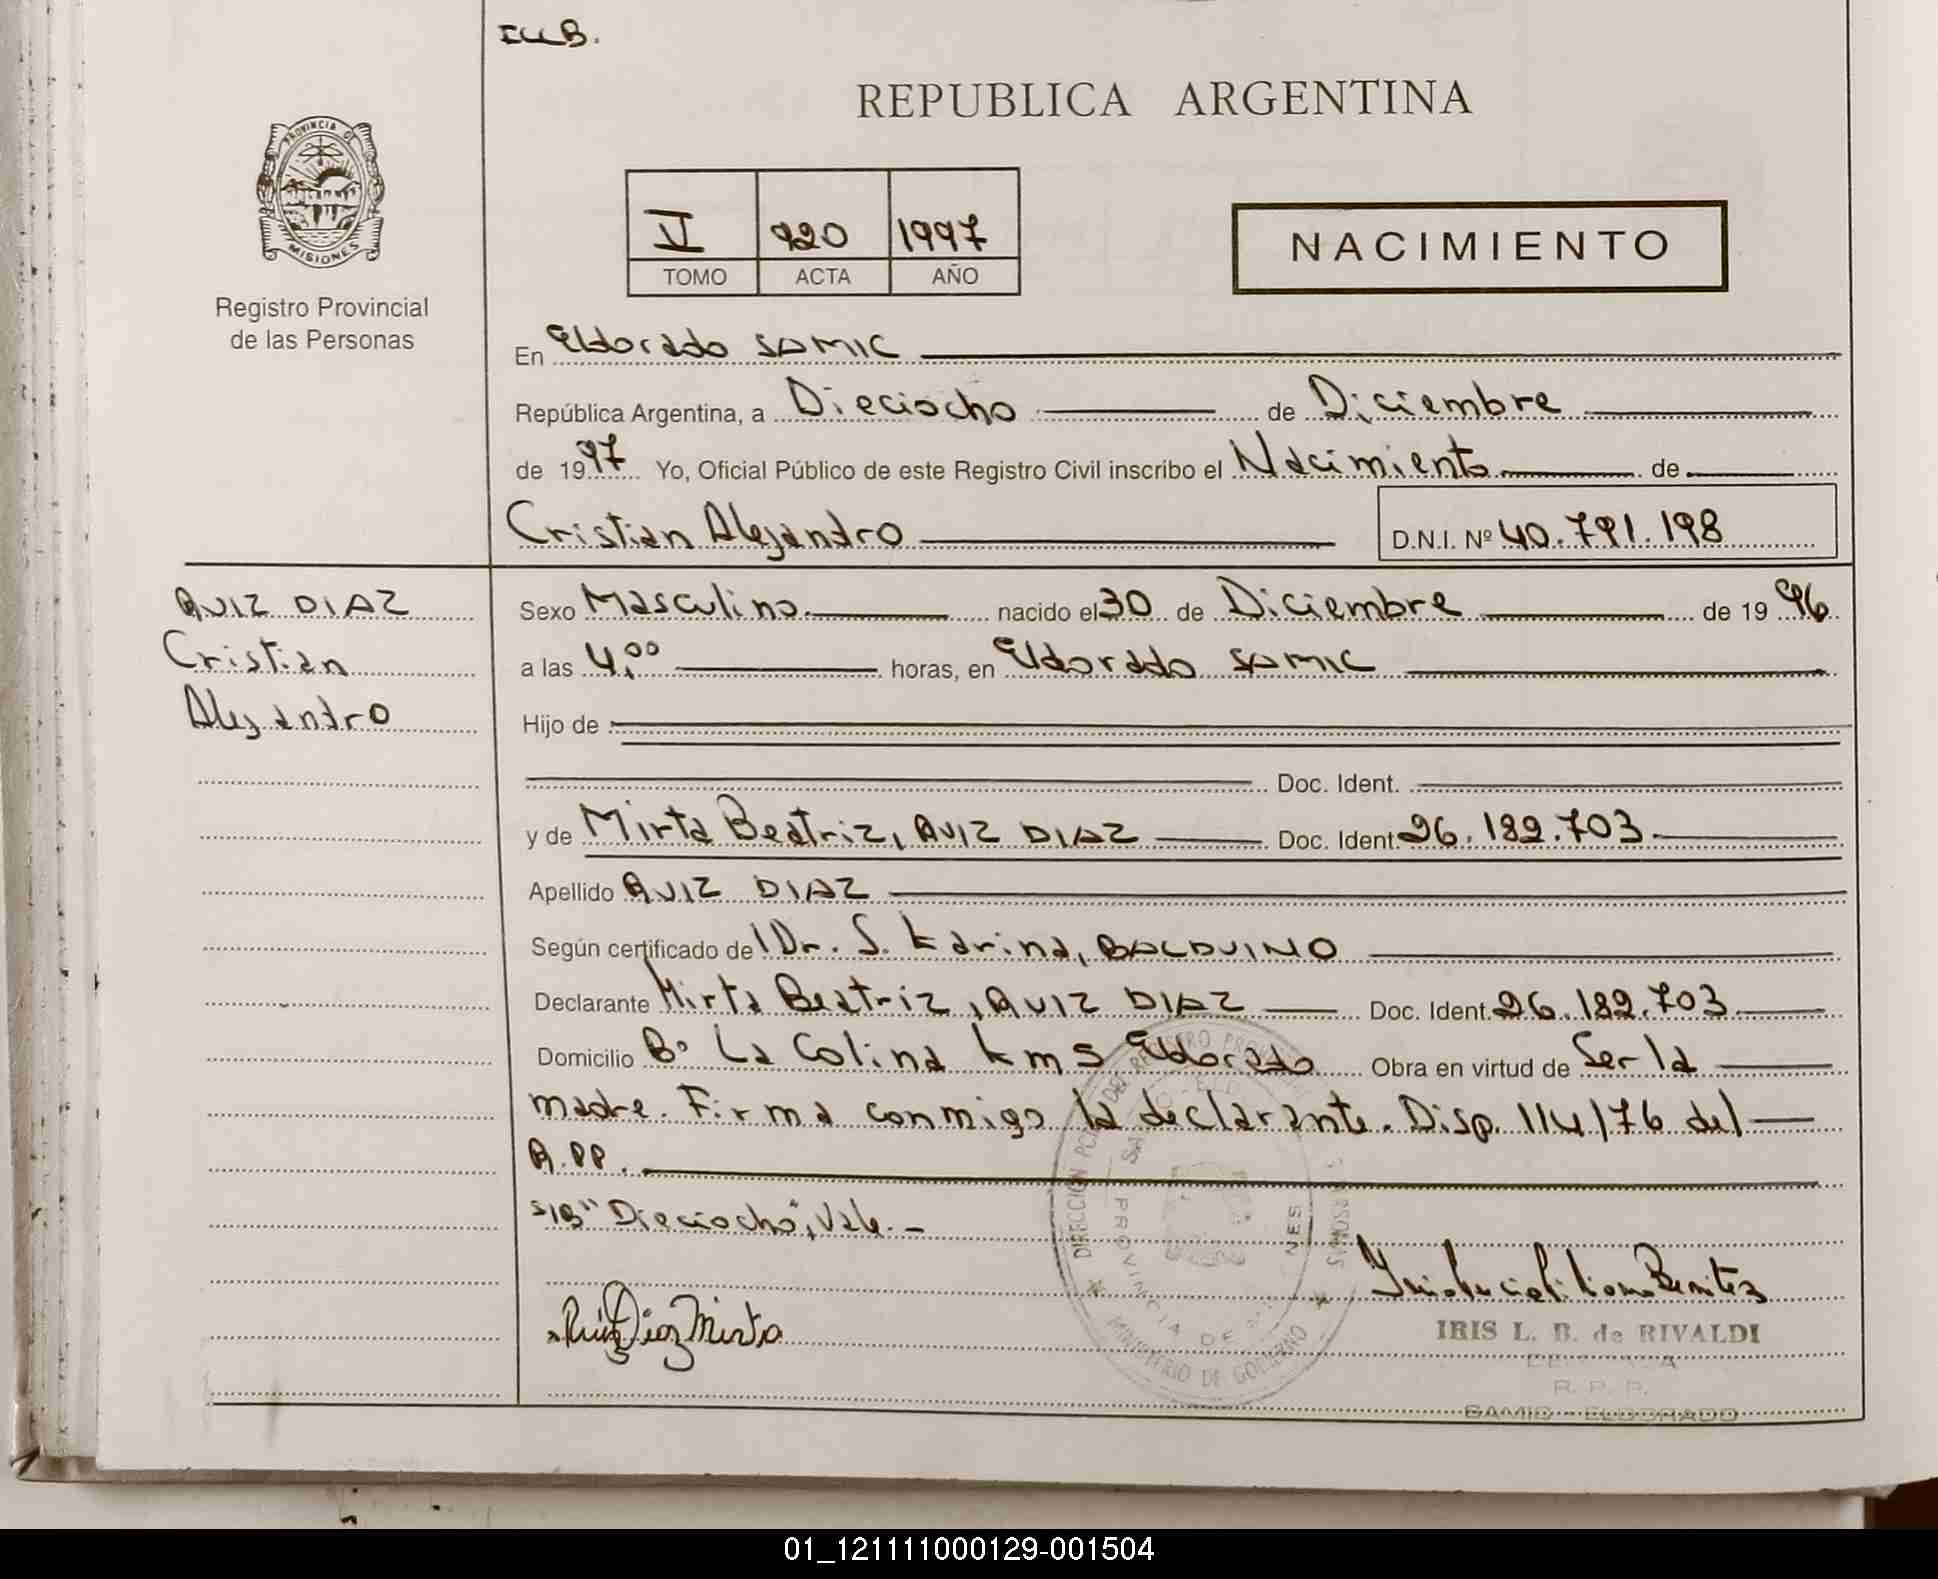 ILLB.
REPUBLICA ARGENTINA
PROVINCIA DE MISIONES
V 920 1997
TOMO ACTA AÑO
NACIMIENTO
Registro Provincial
de las Personas
En Eldorado SAMIC
República Argentina, a Dieciocho de Diciembre
de 1997 Yo, Oficial Público de este Registro Civil inscribo el Nacimiento de
Cristian Alejandro D.N.I. Nº 40.791.198
RUIZ DIAZ
Cristian
Alejandro
Sexo Masculino nacido el 30 de Diciembre de 1996
a las 4,00 horas, en Eldorado SAMIC
Hijo de
Doc. Ident.
y de Mirta Beatriz, RUIZ DIAZ Doc. Ident. 26.182.703
Apellido RUIZ DIAZ
Según certificado de Dr. S. Karina, BALDUINO
Declarante Mirta Beatriz, RUIZ DIAZ Doc. Ident. 26.182.703
Domicilio Bº La Colina km 5 Eldorado Obra en virtud de Ser la
madre. Firma conmigo la declarante. Disp. 114/76 del
R.PP.
S/B "Dieciocho", Vale.-
Ruiz Diaz Mirta
IRIS L. B. de RIVALDI
R. P. P.
SAMIC - ELDORADO
MINISTERIO DE GOBIERNO
01_121111000129-001504